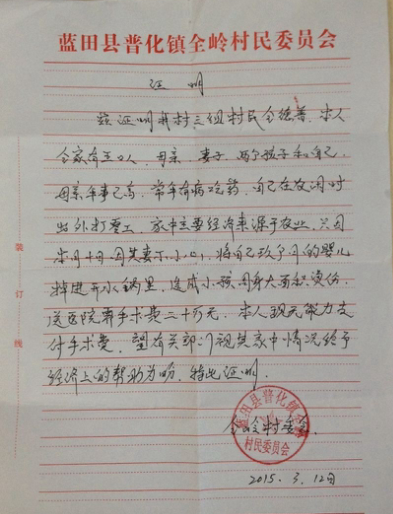 蓝田县普化镇全岭村民委员会
证明
兹证明我村三组村民全德善,本人
全家有五口人,母亲,妻子,两个孩子和自己,
母亲年事已高,常年有病吃药,自己在农闲时
出外打零工,家中主要经济来源于农业,只因
本月十日因其妻子不小心,将自己玖个月的婴儿
掉进开水锅里,造成小孩周身大面积烫伤,
送医院需手术费二十万元,本人现无能力支
付手术费,望有关部门视其家中情况给予
经济上的帮助为盼,特此证明.
全岭村委会
2015.3.12日
蓝田县普化镇全岭
村民委员会
装订线